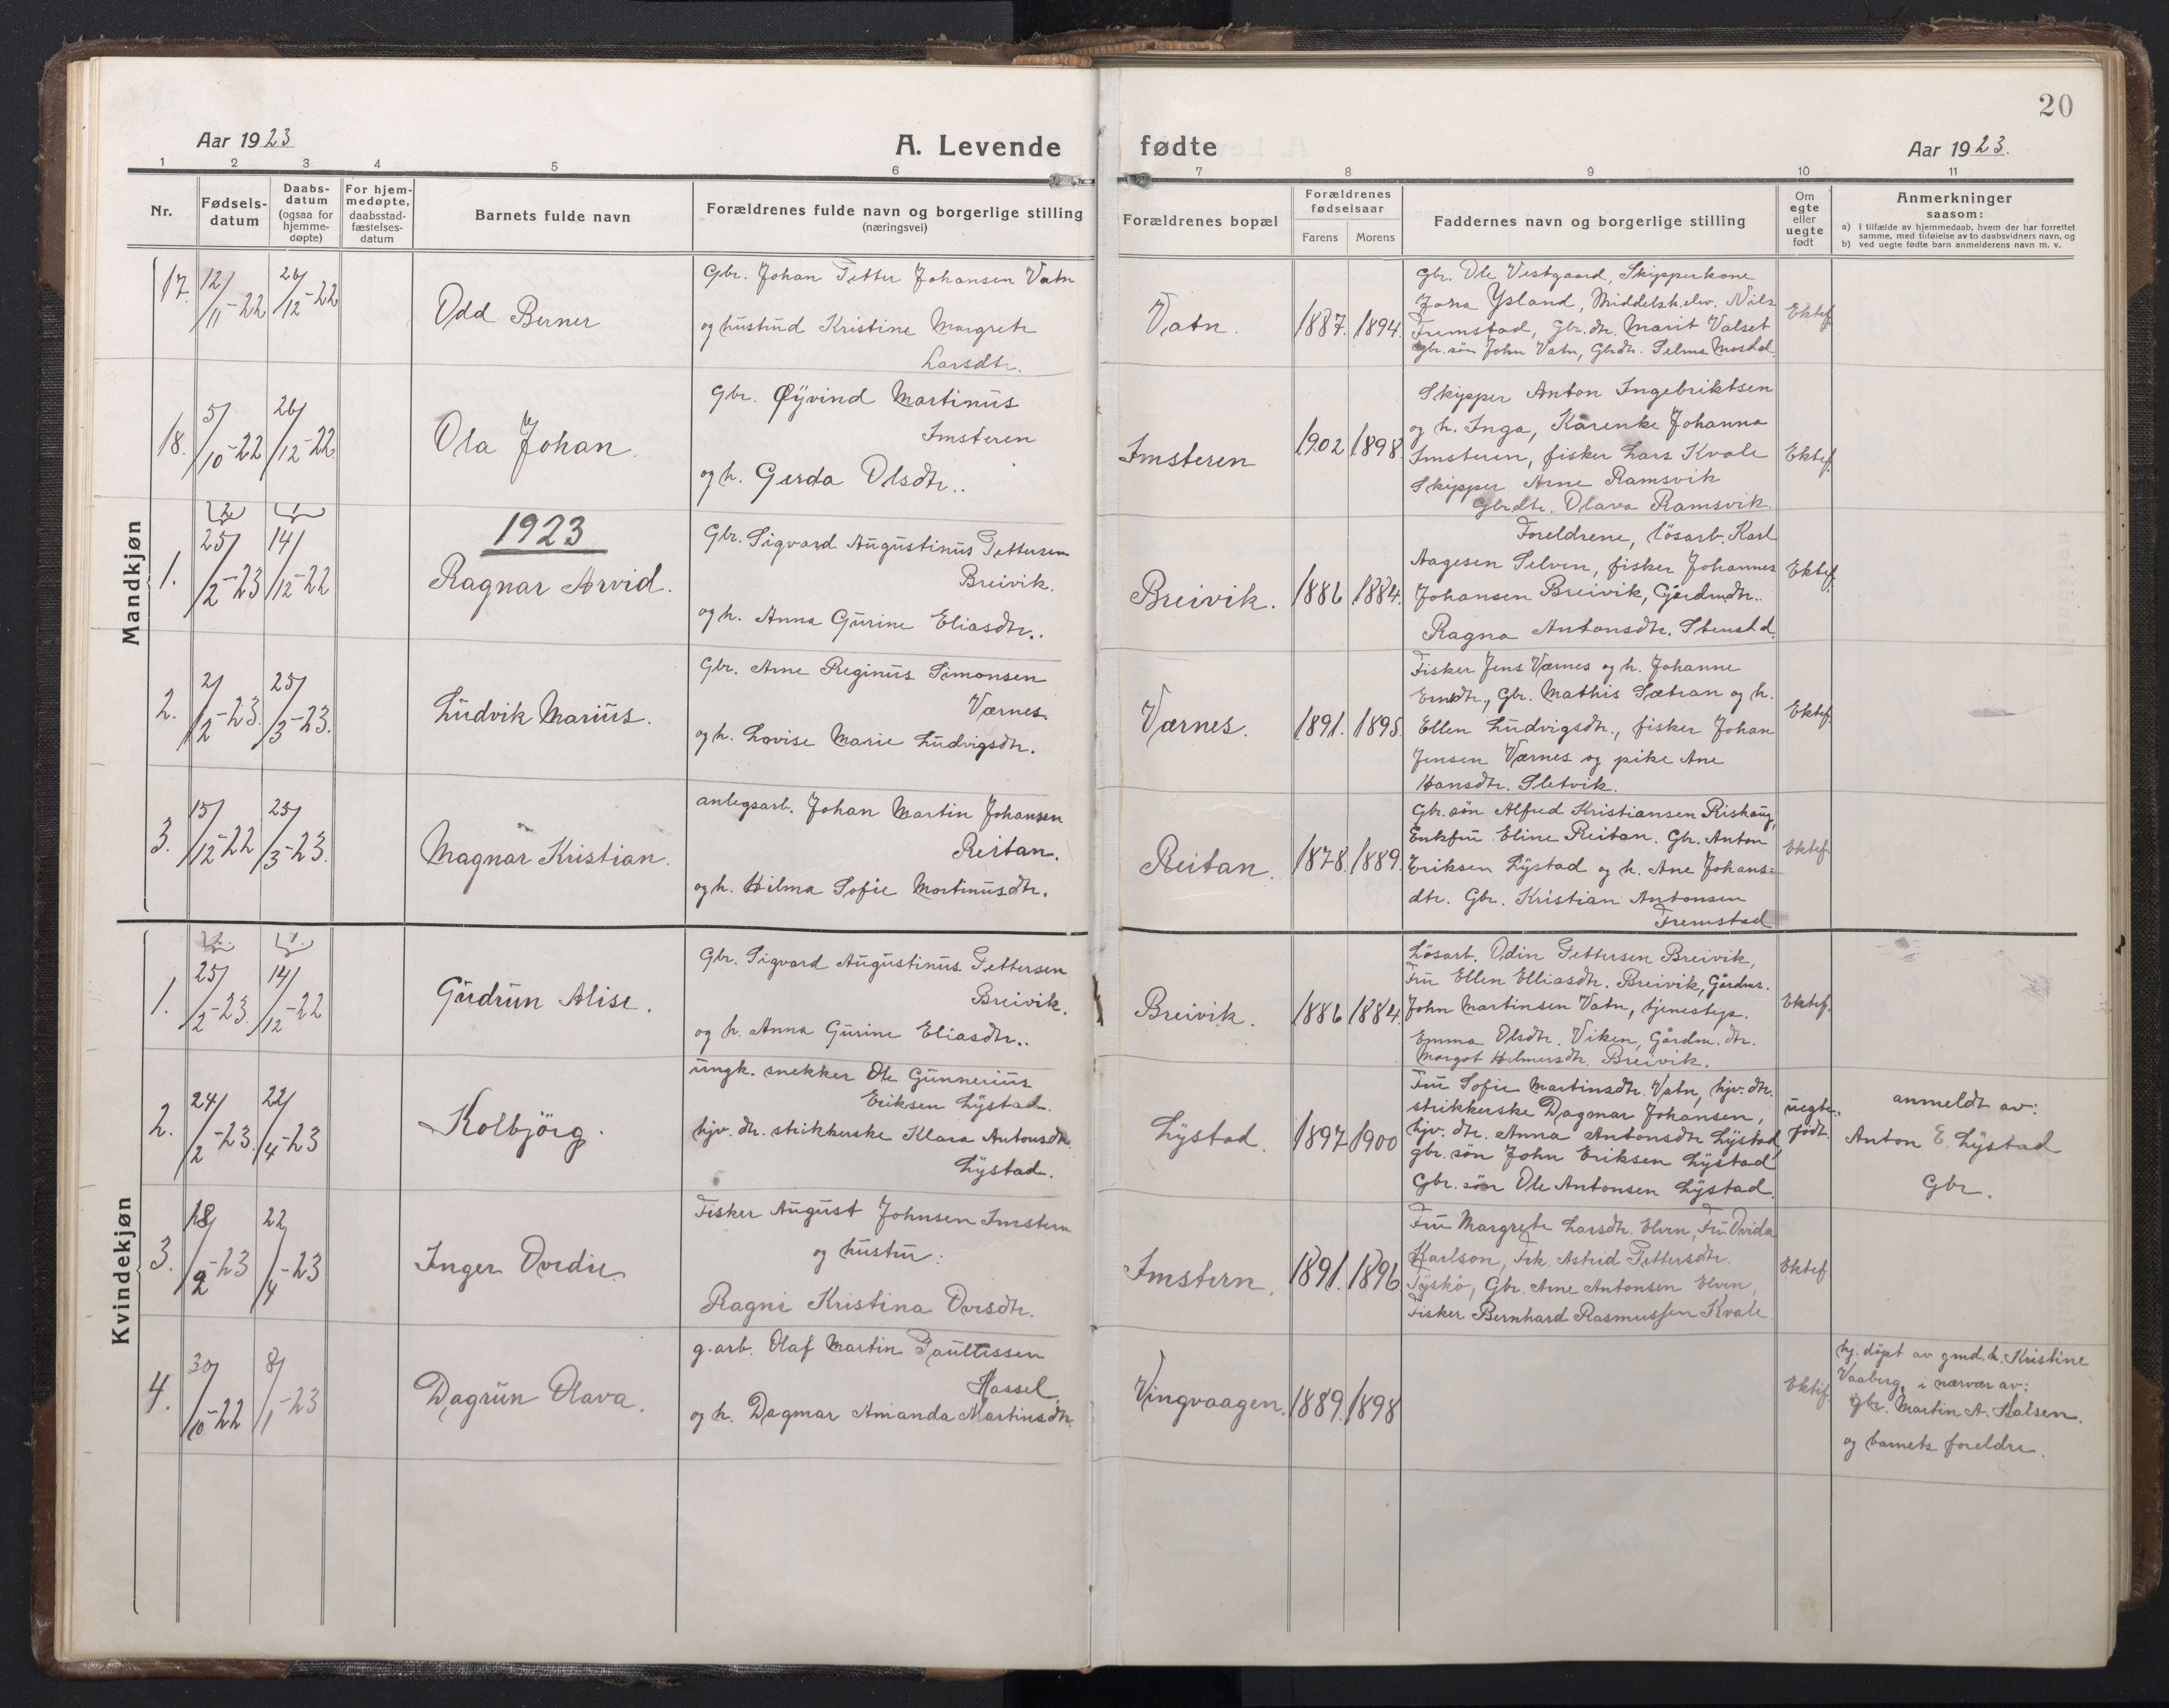 20
Aar 1923
A. Levende
fødte
Aar 1923.
1 2 3 4 5 6 7 8 9 10 11
Nr.
Fødsels-
datum
Daabs-
datum
(ogsaa for
hjemme-
døpte)
For hjem-
medøpte,
daabsstad-
fæstelses-
datum
Barnets fulde navn
Forældrenes fulde navn og borgerlige stilling
(næringsvei)
Forældrenes bopæl
Forældrenes
fødselsaar
Farens
Morens
Faddernes navn og borgerlige stilling
Om
egte
eller
uegte
født
Anmerkninger
saasom:
a) i tilfælde av hjemmedaab, hvem der har forrettet
samme, med tilføielse av to daabsvidners navn, og
b) ved uegte fødte barn anmelderens navn m. v.
Mandkjøn
17.
12/11-22
26/12-22
Odd Berner
Gbr. Johan Petter Johansen Vatn
og hustrud Kristine Margrete
Larsdtr.
Vatn.
1887. 1894.
Gbr. Ole Vestgaard, Skipperkone
Jona Ysland, Middelsk.elev. Nils
Fremstad, Gbr. dtr. Marit Valset
gbr. søn John Vatn, Gbrdtr. Selma Mostad
Ektef.
18.
5/10-22
26/12-22
Ola Johan.
Gbr. Øyvind Martinus
Imsteren
og h. Gerda Olsdtr..
Imsteren
1902 1898.
Skipper Anton Ingebriktsen
og h. Inga, Karenke Johanna
Imsteren, fisker Lars Kvale
Skipper Arne Ramsvik
Gbrdtr. Olava Ramsvik.
Ektef.
1923
1.
2.
25/2-23
1.
14/12-22
Ragnar Arvid.
Gbr. Sigvard Augustinus Pettersen
Breivik.
og h. Anna Gurine Eliasdtr..
Breivik.
1886 1884.
Foreldrene, løsarb. Karl
Aagesen Selven, fisker Johannes
Johansen Breivik, Gårdmdtr..
Ragna Antonsdtr. Stenstd.
Ektef.
2.
2/2-23.
25/3-23.
Ludvik Marius.
Gbr. Arne Reginus Simonsen
Værnes.
og h. Lovise Marie Ludvigsdtr.
Værnes.
1891. 1895.
Fisker Jens Værnes og h. Johanne
Gbr. Mathis Sætran og h.
Ellen Ludvigsdtr., fisker Johan
Jensen Værnes og pike Ane
Hansdtr. Sletvik.
Ektef.
3.
15/12-22
25/3-23.
Magnar Kristian.
anlegsarb. Johan Martin Johansen
Reitan.
og h. Hilma Sofie Mortinusdtr.
Reitan.
1878. 1889.
Gbr. søn Alfred Kristiansen Rishaug,
Enkfru Eline Reitan. Gbr. Anton
Eriksen Lystad og h. Ane Johans=
dtr. Gbr. Kristian Antonsen
Fremstad
Ektef.
Kvindekjøn
1.
2.
25/2-23.
1.
14/12-22
Gudrun Alise.
Gbr. Sigvard Augustinus Pettersen
Breivik.
og h. Anna Gurine Eliasdtr..
Breivik.
1886 1884.
Løsarb. Odin Pettersen Breivik,
Fru Ellen Elliasdtr. Breivik, Gårdmr.
John Martinsen Vatn, tjenestep.
Emma Olsdtr. Viken, Gårdm. dtr.
Margot Helmersdtr. Breivik.
Ektef.
2.
24/2-23.
22/4-23
Kolbjörg.
ungk. snekker Ole Gunnerius
Eriksen Lystad.
hjv. dtr. strikkerske Klara Antonsdtr.
Lystad.
Lystad.
1897 1900
Fru Sofie Martinsdtr. Vatn, hjv. dtr.
strikkerske Dagmar Johansen,
hjv. dtr. Anna Antonsdtr Lystad,
gbr. søn John Eriksen Lystad
Gbr. søn Ole Antonsen Lystad.
uegte.
født.
anmeldt av:
Anton E. Lystad
Gbr.
3.
18/2-23
22/4-23
Inger Ovedie.
Fisker August Johnsen Imstern
og hustru:
Ragni Kristina Ovesdtr.
Imstern.
1891. 1896
Fru Margrete Larsdtr. Elven, Fru Ovida
Karlson, Frk. Astrid Pettersdtr.
Tyskø, Gbr. Arne Antonsen Elven,
Fisker Bernhard Rasmussen Kvale
Ektef
4.
30/10-22
8/1-23
Dagrun Olava.
g.arb. Olaf Martin Paulissen
Hassel.
og h. Dagmar Amanda Martinsdtr.
Vingvaagen.
1889. 1898
Ektef.
hj. døpt av gmd. k. Kristine
Vaaberg, i nærvær av:
gbr. Martin A. Halsen.
og barnets foreldre.